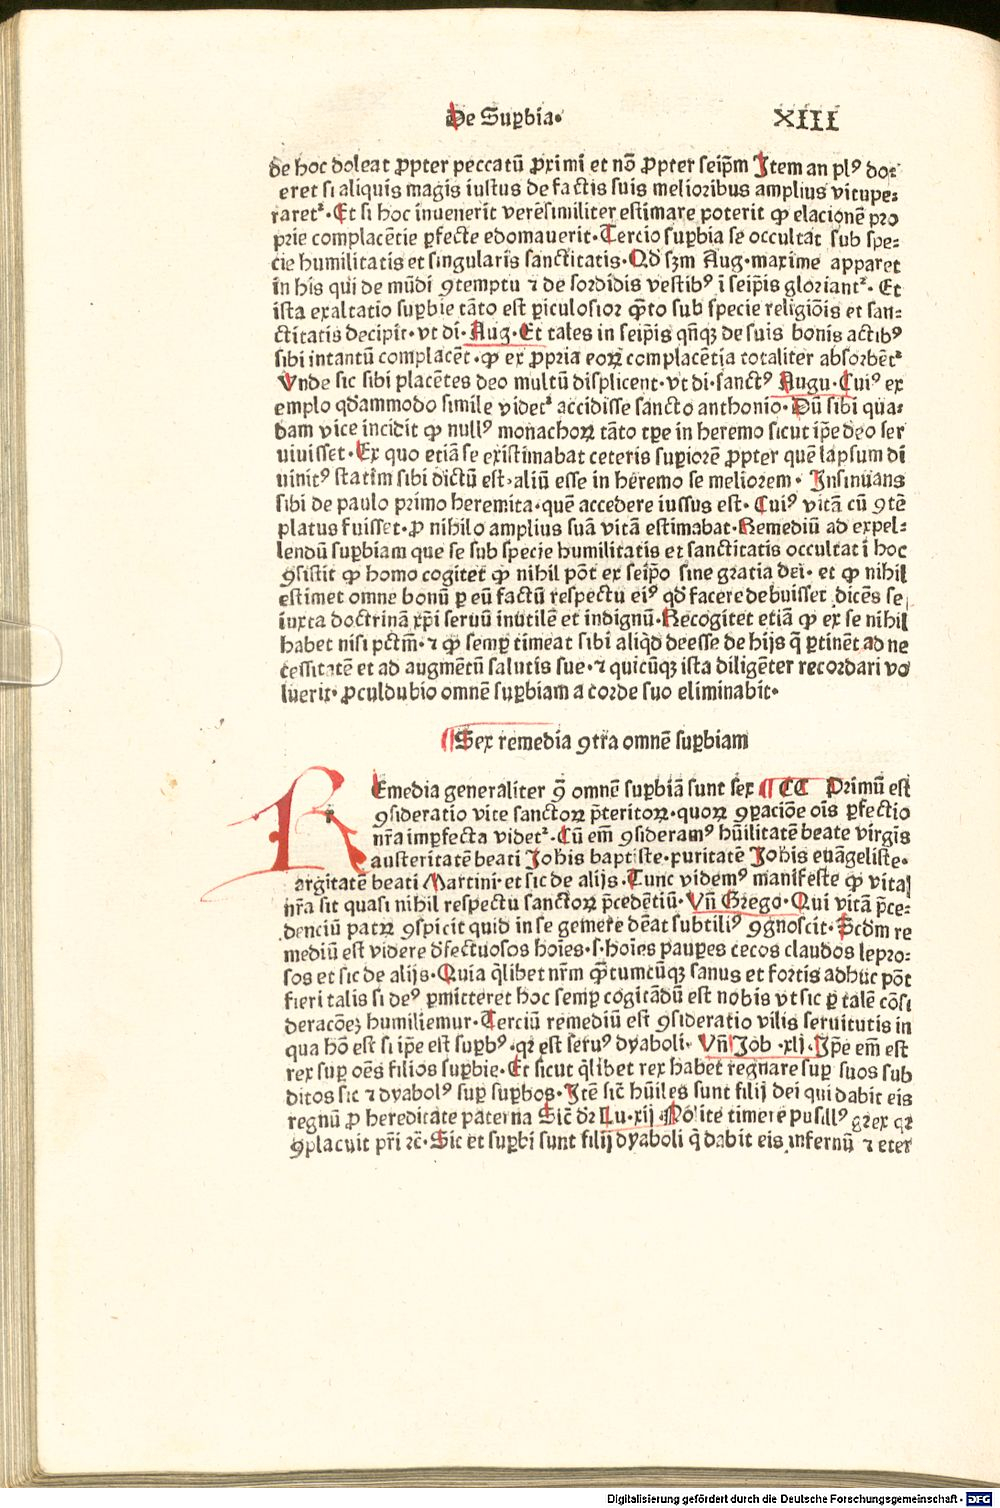 De Suꝑbia·
XIII
de hoc doleat ꝓpter peccatū ꝓximi et nō ꝓpter seip̄m Item an plꝰ do⸗
eret si aliquis magis iustus de factis suis melioribus amplius vitupe⸗
raretᷣ· Et si hoc inuenerit verēsimiliter estimare poterit ꝙ elacionē pro
prie complacētie ꝑfecte edomauerit· Tercio suꝑbia se occultat sub spe⸗
cie humilitatis et singularis sanctitatis· Qd̄ sꝫm Aug· maxime apparet
in his qui de mūdi ꝯtemptu ⁊ de sordidis vestibꝰ ī seip̄is gloriantᷣ· Et
ista exaltatio suꝑbie tāto est ꝑiculosior q̄̄to sub specie religiōis et san⸗
ctitatis decipit· vt di· Aug· Et tales in seip̄is qn̄qꝫ de suis bonis actibꝰ
sibi intantū complacēt· ꝙ ex ꝓpria eoꝝ complacentia totaliter absorbētᷣ
Vnde sic sibi placētes deo multū displicent· vt di· sanctꝰ Augu· Cuiꝰ ex
emplo qd̄ammodo simile videtᷣ accidisse sancto anthonio· Dū sibi qua⸗
dam vice incidit ꝙ nullꝰ monachoꝝ tāto tꝑe in heremo sicut ip̄e deo ser
uiuisset· Ex quo etiā se existimabat ceteris suꝑiorē ꝓpter quē lapsum di
uinitꝰ statim sibi dictū est· aliū esse in heremo se meliorem· Insinuans
sibi de paulo primo heremita· quē accedere iussus est· Cuiꝰ vitā cū ꝯtē
platus fuisset· ꝓ nihilo amplius suā vitā estimabat· Remediū ad expel⸗
lendū suꝑbiam que se sub specie humilitatis et sanctitatis occultat ī hoc
ꝯsistit ꝙ homo cogitet ꝙ nihil pōt ex seip̄o sine gratia dei· et ꝙ nihil
estimet omne bonū ꝑ eū factū respectu eiꝰ qd̄ facere debuisset dicēs se
iuxta doctrinā xp̄i seruū inutilē et indignū· Recogitet etiā ꝙ ex se nihil
habet nisi pctm̄· ⁊ ꝙ semꝑ timeat sibi aliqd̄ deesse de hijs q̄ ꝑtinēt ad ne
cessitatē et ad augmētū salutis sue· ⁊ quicūqꝫ ista diligēter recordari vo
luerit· ꝓculdubio omnē suꝑbiam a corde suo eliminabit·
¶ Sex remedia ꝯtra omnē suꝑbiam
REmedia generaliter ꝯ̄ omnē suꝑbiā sunt sex ¶ CC Primū est
ꝯsideratio vite sanctoꝝ p̄teritoꝝ· quoꝝ ꝯꝑaciōe oīs ꝑfectio
nr̄a imꝑfecta videtᷣ· Cū em̄ ꝯsideramꝰ hūilitatē beate virgīs
austeritatē beati Iohis baptiste· puritatē Iohis euāgeliste·
argitatē beati Martini· et sic de alijs· Tunc videmꝰ manifeste ꝙ vita
nr̄a sit quasi nihil respectu sanctoꝝ p̄cedētiū· Vn̄ Grego· Qui vitā p̄ce⸗
denciū patꝝ ꝯspicit quid in se gemere dēat subtiliꝰ ꝯgnoscit· Scd̄m re
mediū est videre d̄fectuosos hoīes· s· hoīes pauꝑes cecos claudos lepro⸗
sos et sic de alijs· Quia q̄libet nr̄m q̄̄tumcūqꝫ sanus et fortis adhuc pōt
fieri talis si deꝰ ꝑmitteret hoc semꝑ cogitādū est nobis vt sic ꝑ talē cōsi
deracōeꝫ humiliemur· Terciū remediū est ꝯsideratio vilis seruitutis in
qua hō est si ip̄e est suꝑbꝰ· qꝛ est seruꝰ dyaboli· Vn̄ Iob ·xlj· Ip̄e em̄ est
rex suꝑ oēs filios suꝑbie· Et sicut q̄libet rex habet regnare suꝑ suos sub
ditos sic ⁊ dyabolꝰ suꝑ suꝑbos· Itē sic̄ hūiles sunt filij dei qui dabit eis
regnū ꝓ hereditate paterna Sic̄ dꝛ Lu· xij Nolite timere pusillꝰ grex qꝛ
ꝯplacuit pr̄i ⁊c̄· Sic et suꝑbi sunt filij dyaboli q̄ dabit eis infernū ⁊ eter
Digitalisierung gefördert durch die Deutsche Forschungsgemeinschaft - DFG